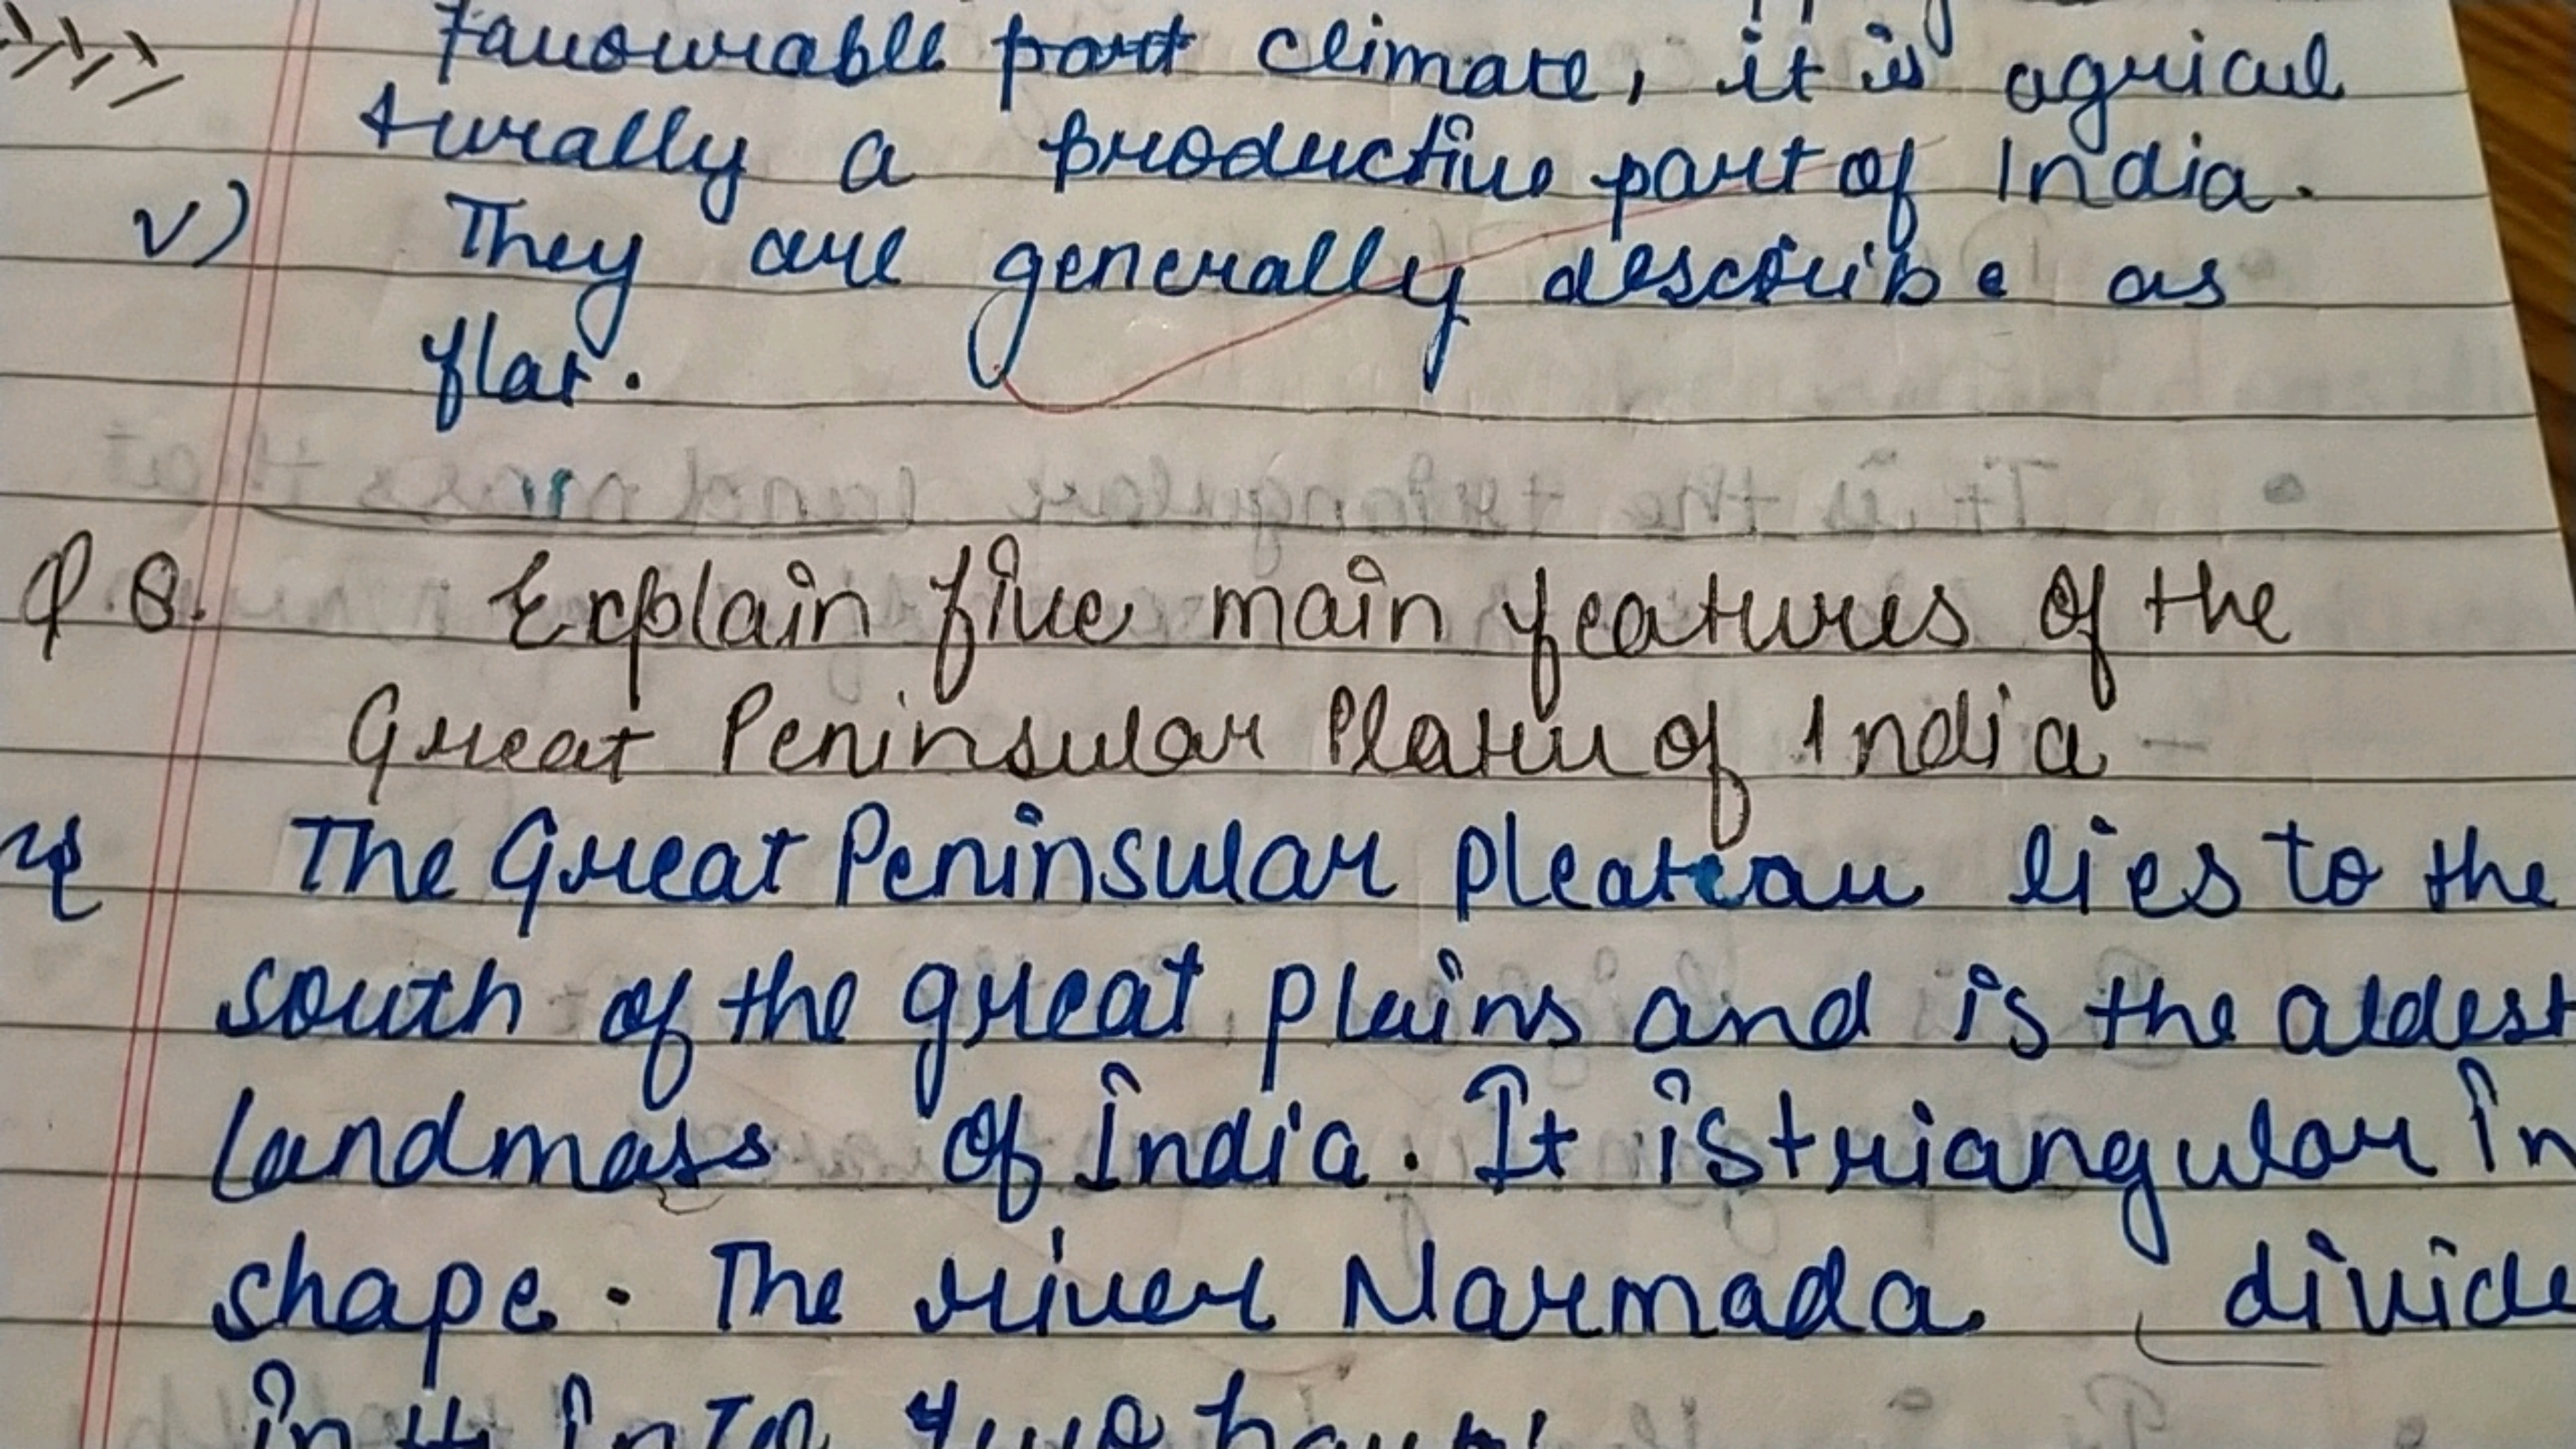 favourable part climate, it is agricul
turally a productive part of India.
v) They are generally describe as
flat.
Q.8. Explain five main features of the
Great Peninsular Platuu of India
The Great Peninsular pleateau lies to the
south of the great plains and is the aldest
landmass of India. It is triangular in
shape. The river Narmada divide
into two